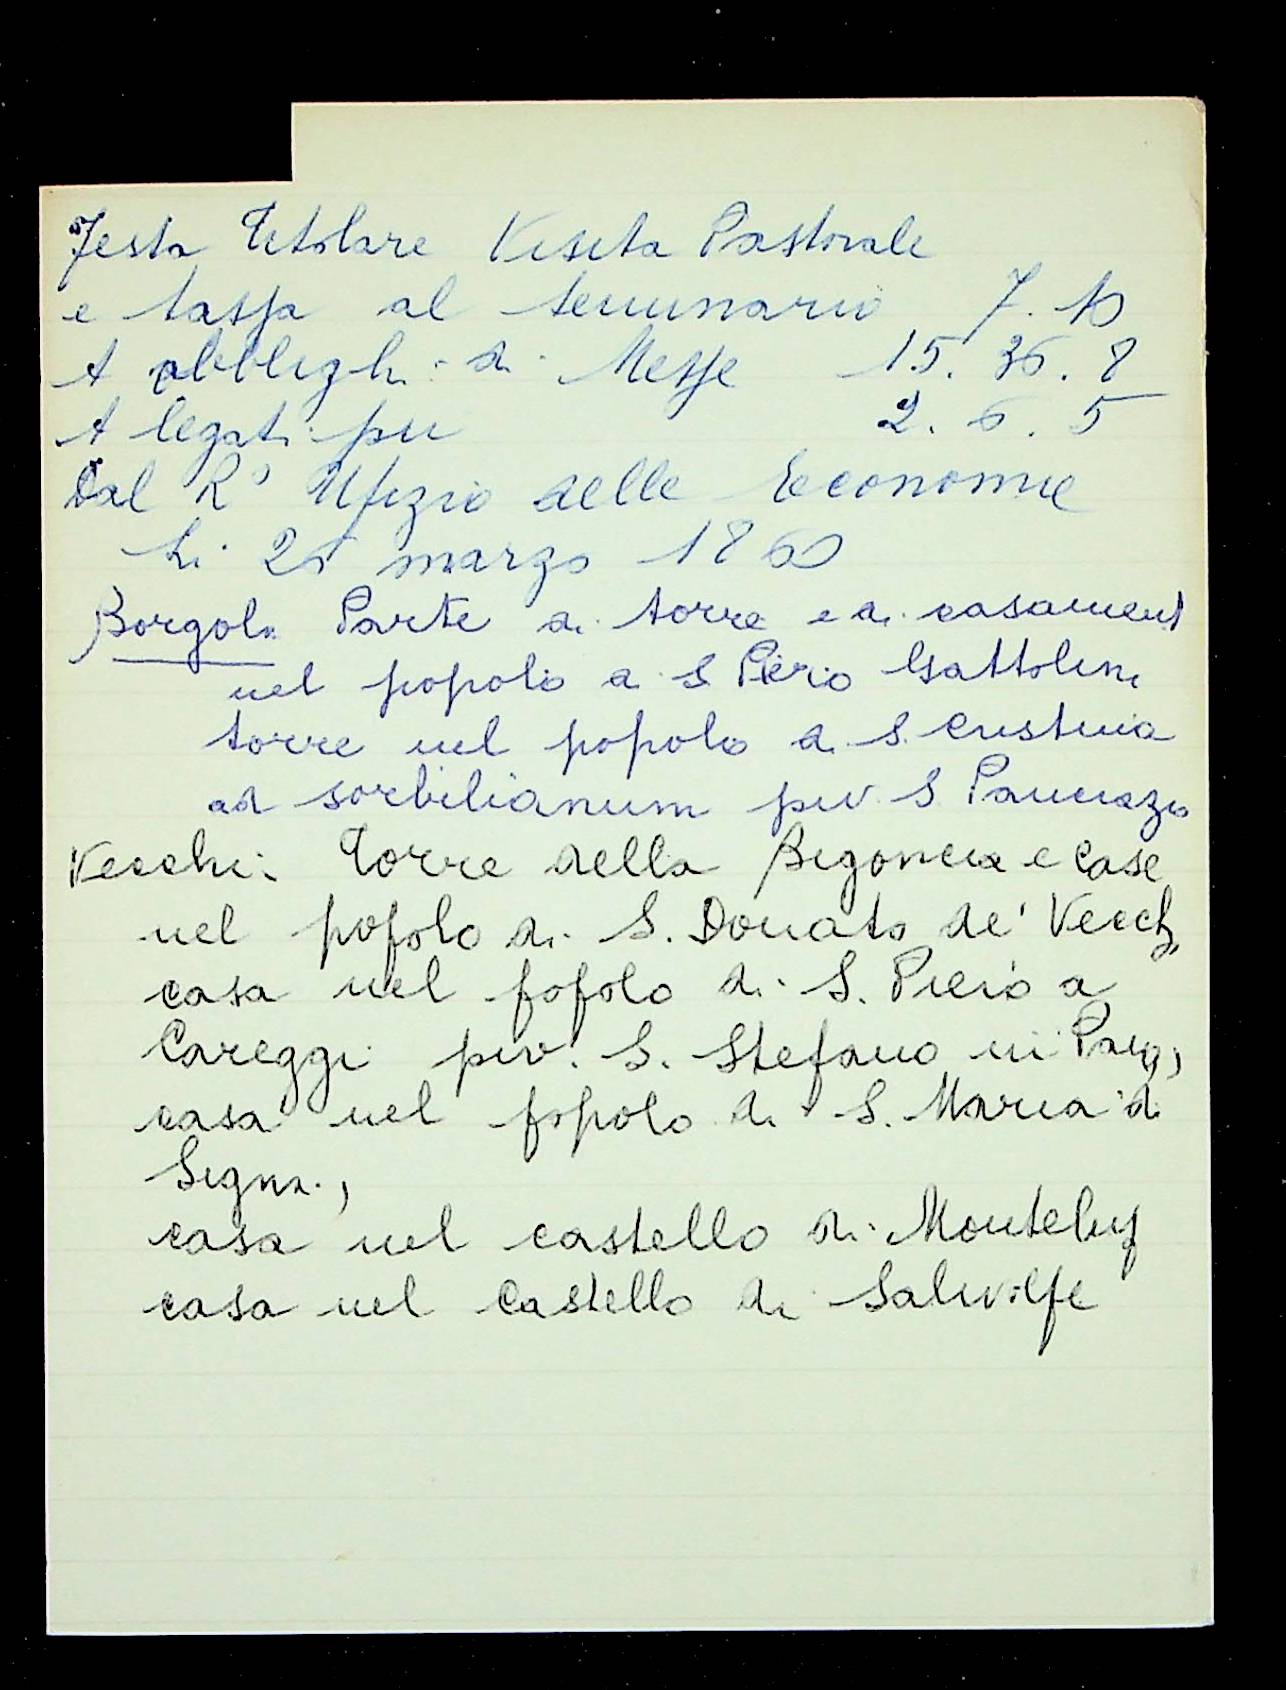 Festa Titolare Visita Pastorale
e tassa al seminario 7. 10
A obblighi di Messe 15. 36. 8
A legati pii 2. 6. 5
Dal R° Ufizio delle Economie
li 25 marzo 1860
Borgoli Parte di torre e di casament
nel popolo di S Piero Gattolini
torre nel popolo di S. Cristina
ad sorbilianum piv. S Pancrazio
Vecchi: Torre della Bigoncia e case
nel popolo di S. Donato de' Vecch
casa nel popolo di S. Piero a
Careggi piv. S. Stefano in Pan,
casa nel popolo di S. Maria di
Signa.,
casa nel castello di
casa nel castello di